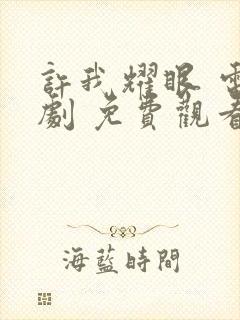 許我耀眼 電
劇 免費觀看
海藍時間